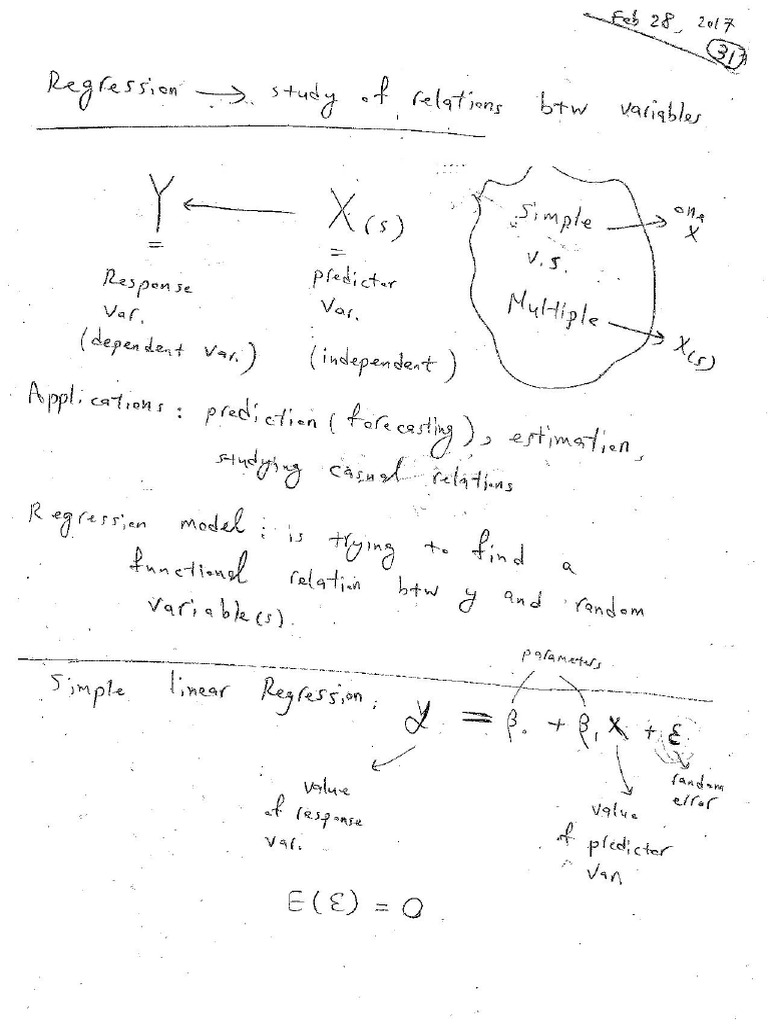 Feb 28, 2017
31
Regression → study of relations btw variables
Y ← X(s)
Response Var. (dependent var.)
predictor Var. (independent)
Simple → one X
v.s.
Multiple → X(s)
Applications: prediction (forecasting), estimation,
studying casual relations
Regression model: is trying to find a
functional relation btw y and random
variable(s).
parameters
Simple linear Regression: y = β₀ + β₁ X + ε
random
error
value
of response
var.
value
of predictor
var.
E(ε) = 0